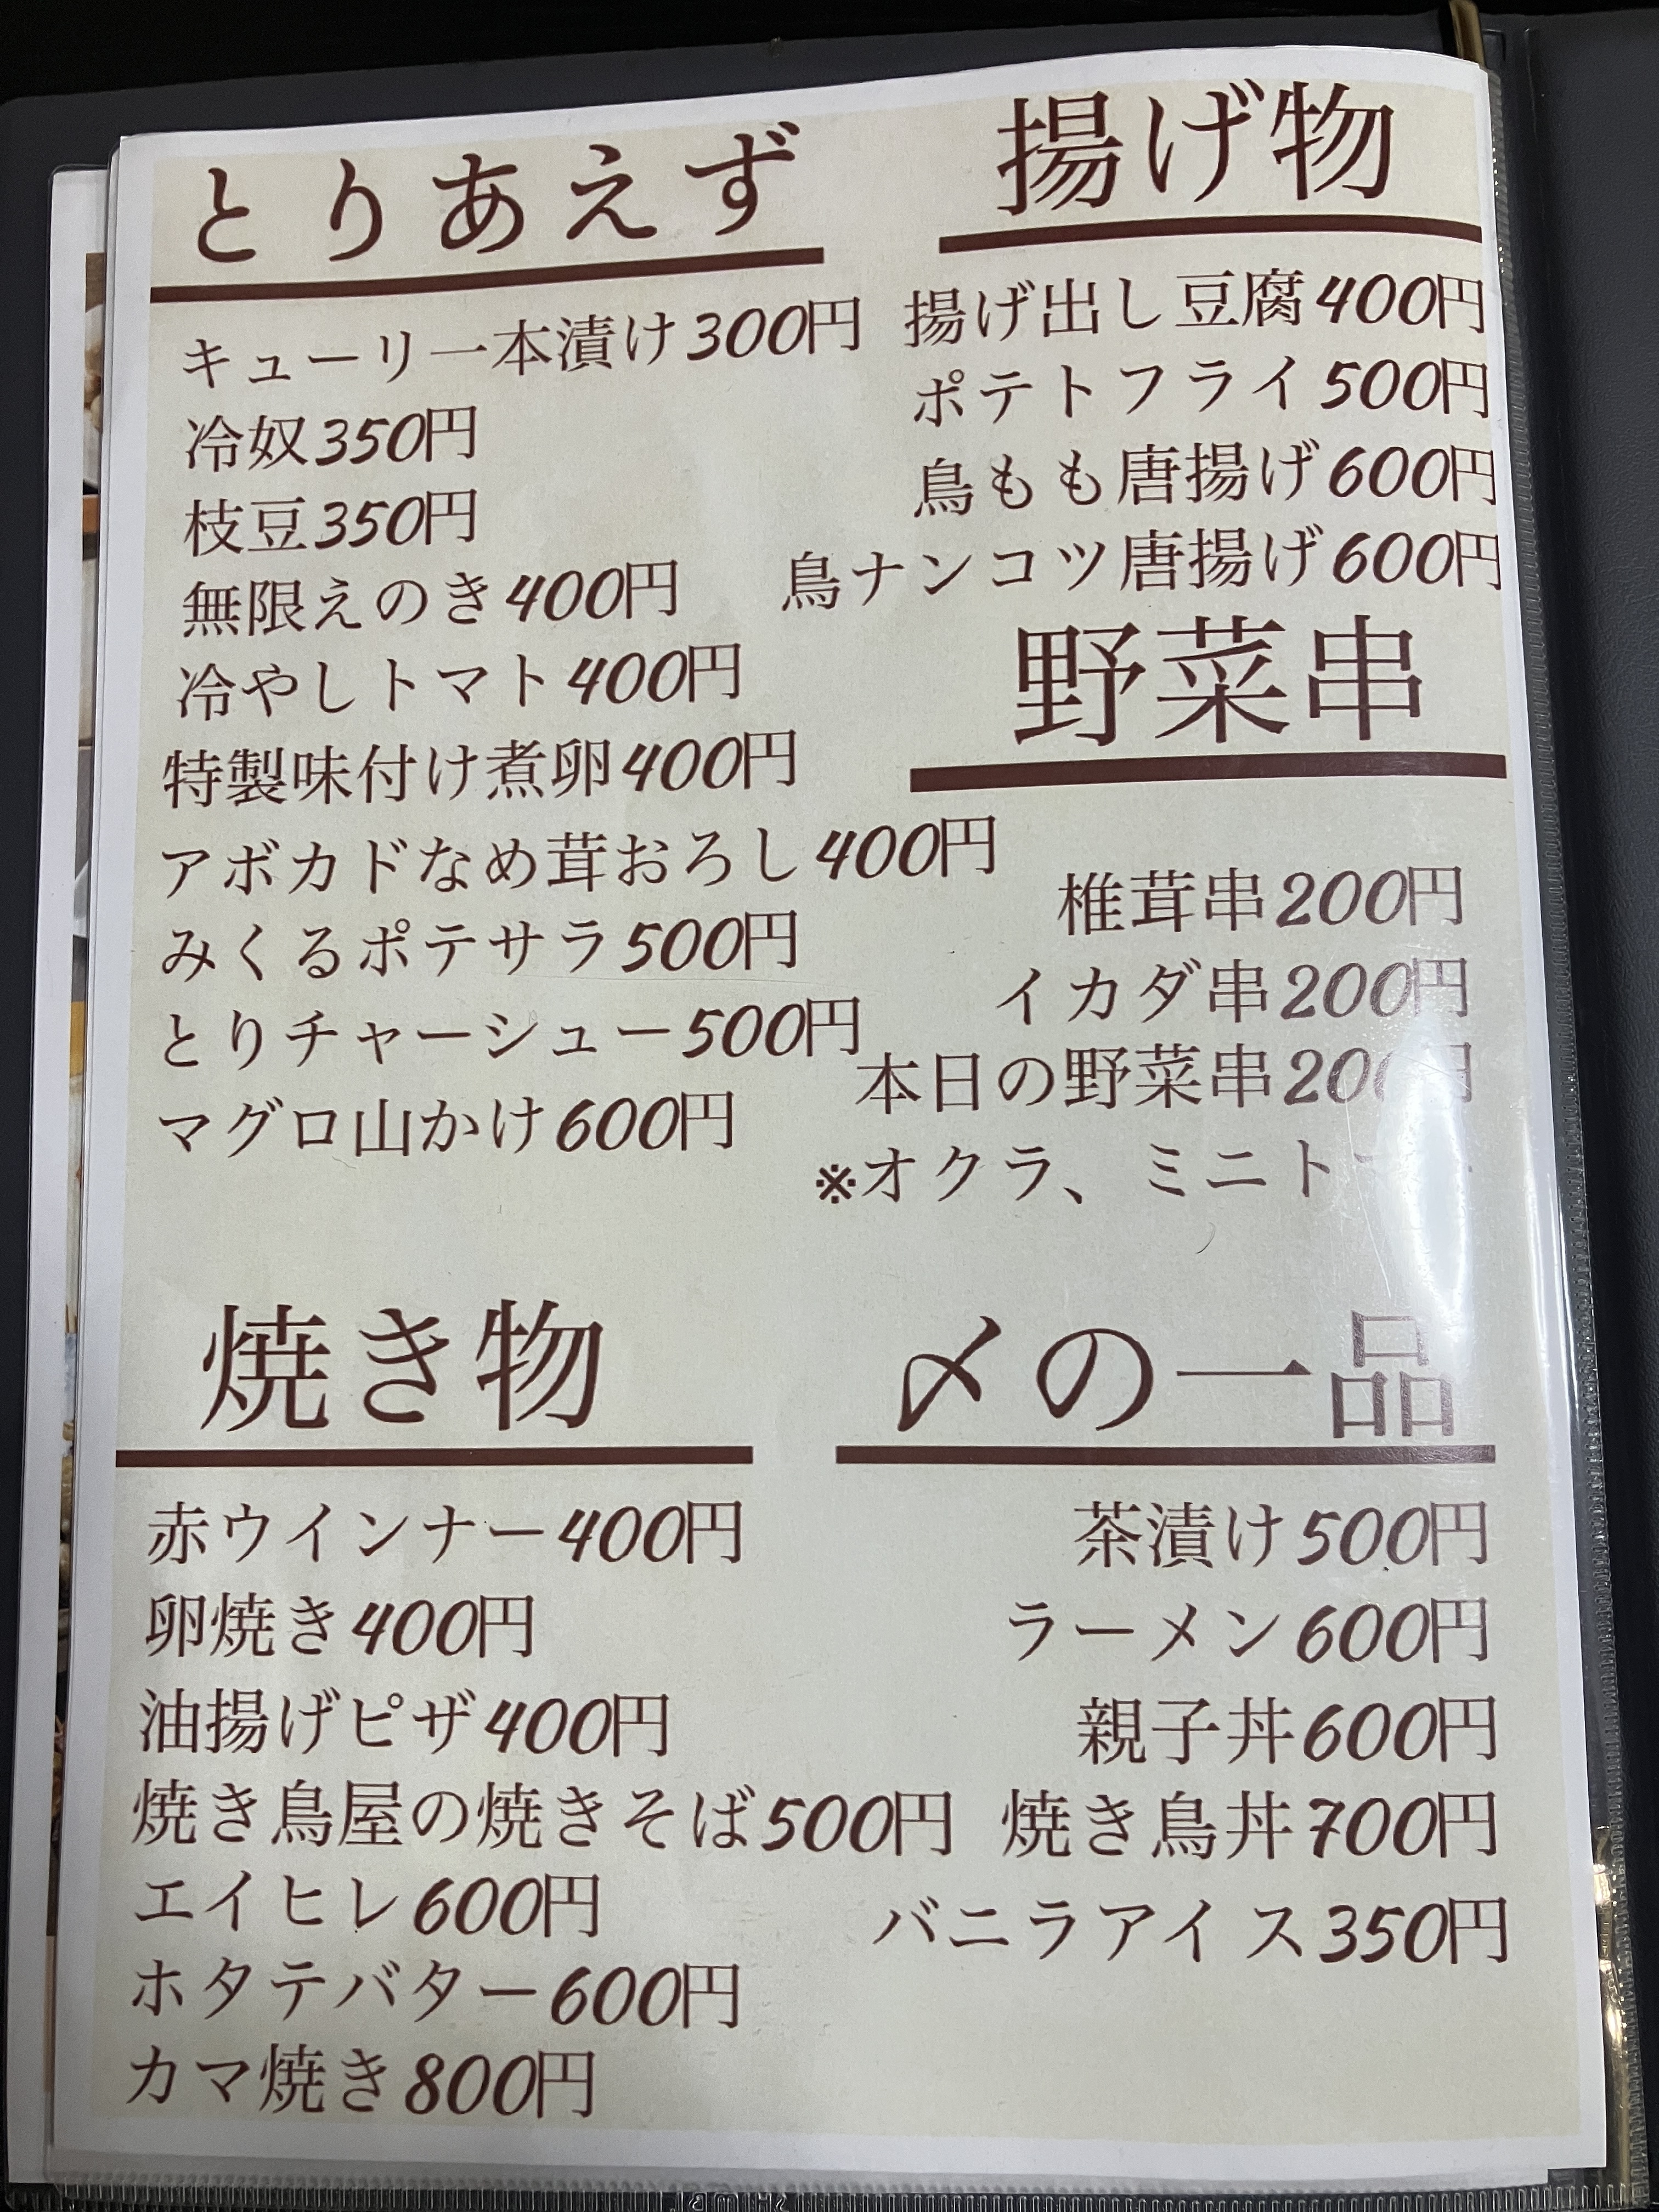 とりあえず
キューリー本漬け300円
冷奴350円
枝豆350円
無限えのき400円
冷やしトマト400円
特製味付け煮卵400円
アボカドなめ茸おろし400円
みくるポテサラ500円
とりチャーシュー500円
マグロ山かけ600円
揚げ物
揚げ出し豆腐400円
ポテトフライ500円
鳥もも唐揚げ600円
鳥ナンコツ唐揚げ600円
野菜串
椎茸串200円
イカダ串200円
本日の野菜串200円
※オクラ、
焼き物
赤ウインナー400円
卵焼き400円
油揚げピザ400円
焼き鳥屋の焼きそば500円
エイヒレ600円
ホタテバター600円
カマ焼き800円
〆の一品
茶漬け500円
ラーメン600円
親子丼600円
焼き鳥丼700円
バニラアイス350円